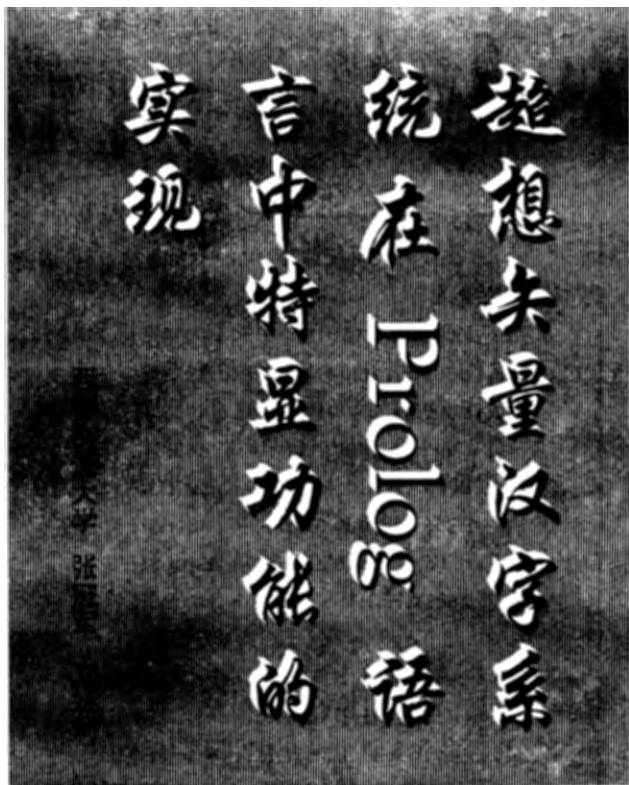 超想矢量汉字系
统在 Prolog 语
言中特显功能的
实现
大学 张